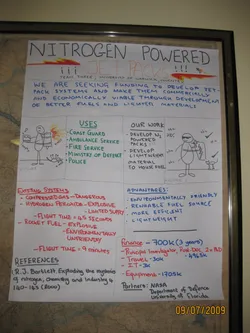 NITROGEN POWERED
JET PACKS
WE ARE SEEKING FUNDING TO DEVELOP JET
PACK SYSTEMS AND MAKE THEM COMMERCIALLY
AND ECONOMICALLY VIABLE THROUGH DEVELOPMENT
OF BETTER FUELS AND LIGHTER MATERIALS.
USES
- COAST GUARD
- AMBULANCE SERVICE
- FIRE SERVICE
- MINISTRY OF DEFENCE
- POLICE
OUR WORK
- DEVELOP N₂
POWERED
PACKS
- DEVELOP
LIGHTWEIGHT
MATERIAL
EXISTING SYSTEMS
- HYDROGEN PEROXIDE - EXPLOSIVE
- LIMITED SUPPLY
- FLIGHT TIME
- ROCKET FUEL - EXPLOSIVE
- ENVIRONMENTALLY
UNFRIENDLY
- FLIGHT TIME - 9 minutes
ADVANTAGES:
- ENVIRONMENTALLY FRIENDLY
- RENEWABLE FUEL SOURCE
- MORE EFFICIENT
- LIGHTWEIGHT
Finance - 700K (3 years)
- Travel: 30K
- Equipment: 170K
REFERENCES
R.J. Bartlett, Exploding the mysteries
of nitrogen, Chemistry and Industry, 4
140-143 (2000)
Partners: NASA
Department of Defence
University of Florida
09/07/2009